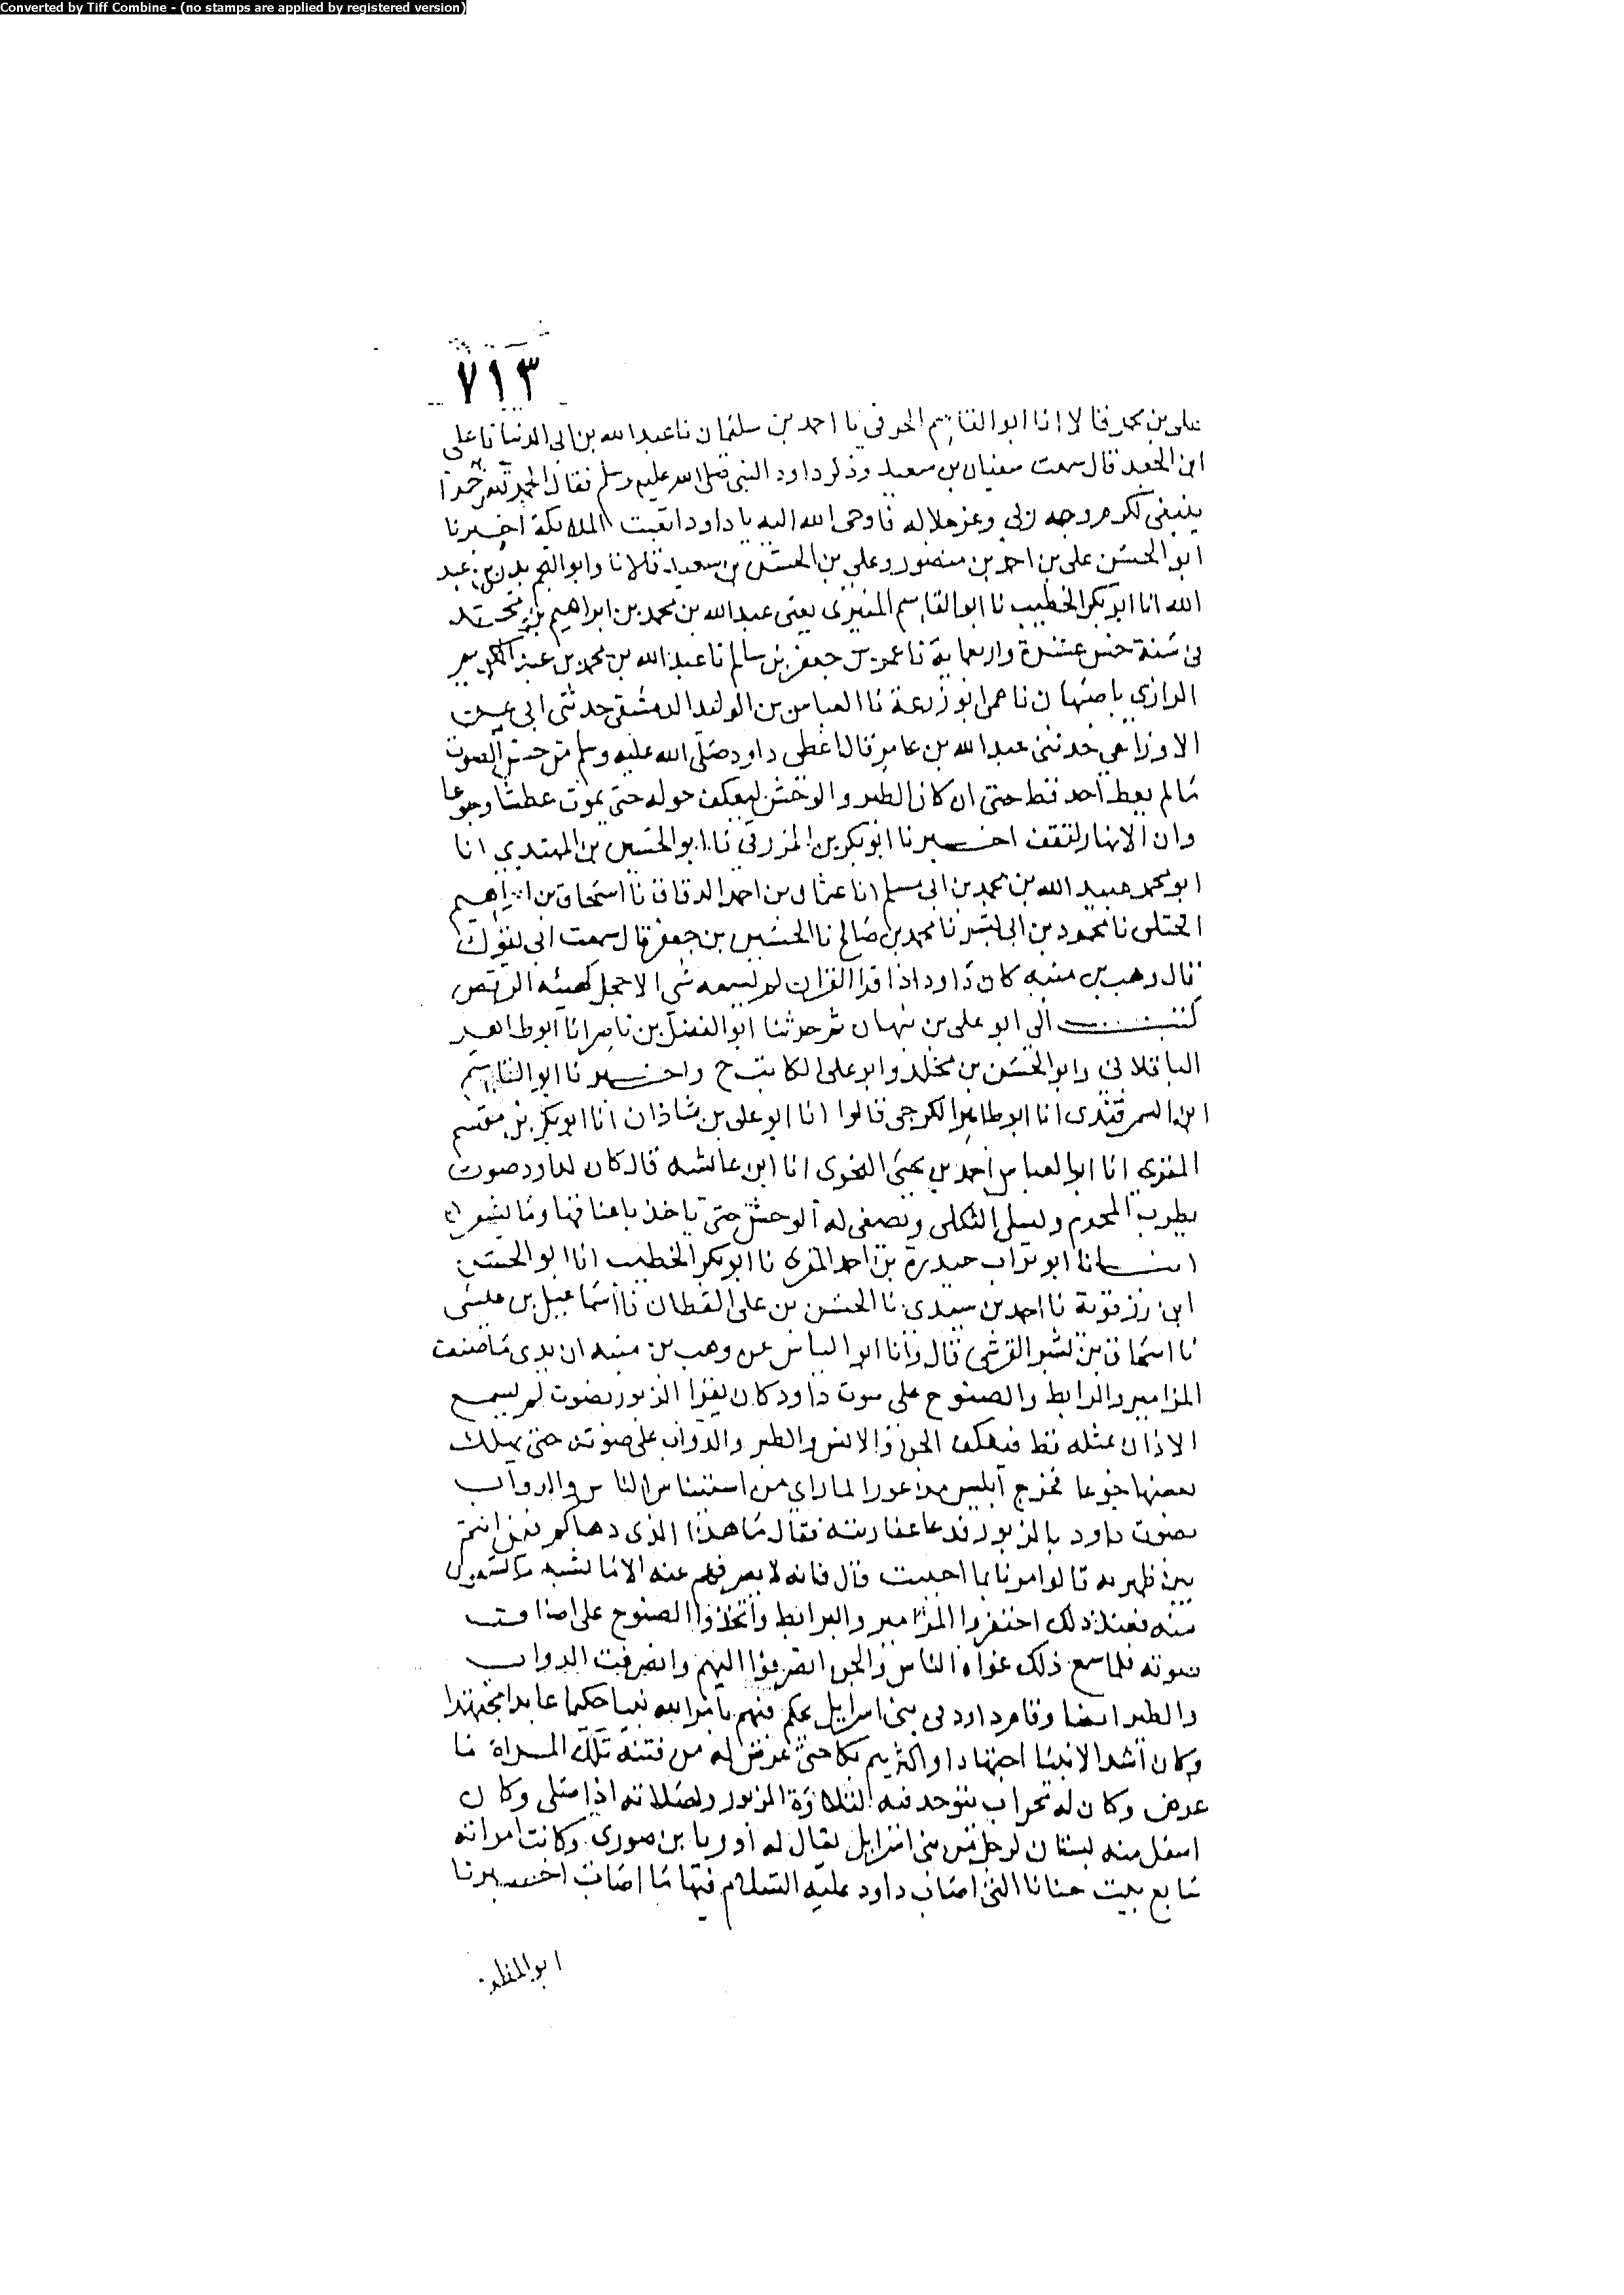 Converted by Tiff Combine - (no stamps are applied by registered version)
٧١٣
على بن محمد قالا انا ابو القاسم الحرفي نا احمد بن سلمان نا عبد الله بن ابي الدنيا نا على
ابن الجعد قال سمعت سفيان بن سعيد وذكر داود النبي صلى الله عليه وسلم فقال الحمد لله حمدا
ينبغي لكرم وجه ربي وعز جلاله فاوحى الله اليه يا داود اتعبت الملائكة اخبرنا
ابو الحسن على بن احمد بن منصور وعلى بن الحسن بن سعيد قالا نا وابو النجم بدر بن عبد
الله انا ابو بكر الخطيب نا ابو القاسم المقرى يعنى عبد الله بن محمد بن ابراهيم بن
في سنة خمس عشرة واربعماية نا عمر بن جعفر بن سالم نا عبد الله بن محمد بن عبد الكريم
الرازي باصبهان نا عمي ابو زرعة نا العباس بن الوليد الدمشقى حدثنى ابي عن
الاوزاعي حدثنى عبد الله بن عامر قال اعطى داود صلى الله عليه وسلم من حسن الصوت
مالم يعط احد قط حتى ان كان الطير والوحش ليعكف حوله حتى يموت عطشا وجوعا
وان الانهار لتقف اخبرنا ابو بكر بن المزرفي نا ابو الحسين بن المهتدي انا
ابو محمد عبيد الله بن محمد بن ابي مسلم انا عثمان بن احمد الدقاق نا اسحاق بن ابراهيم
الختلى نا محمود بن ابي بشر نا محمد بن صالح نا الحسين بن جعفر قال سمعت ابي يقول
قال وهب بن منبه كان داود اذا قرا القران لم يسمعه شي الا حجل كهيئه الرقص
كتب الي ابو على بن نبهان ثم حدثنا ابو الفضل بن ناصر انا ابو طاهر
الباقلاني وابو الحسن بن مخلد وابو على الكاتب ح واخبرنا ابو القاسم
ابن السمرقندى انا ابو طاهر الكرجى قالوا انا ابو على بن شاذان انا ابو بكر بن مقسم
المقرى انا ابو العباس احمد بن يحيى النحوى انا ابن عائشه قال كان لداود صوت
يطرب المحموم ويسلى الثكلى وتصغى له الوحش حتى ياخذ باعناقها وما يشعرن
انبانا ابو تراب حيدرة بن احمد المقرى نا ابو بكر الخطيب انا ابو الحسن
ابن رزقوية نا احمد بن سندى نا الحسن بن على القطان نا اسماعيل بن عيسى
نا اسحاق بن بشر القرشي قال وانا ابو الياس عن وهب بن منبه ان بدى ما صنعت
المزامير والبرابط والصنوج على صوت داود كان يقرا الزبور بصوت لم يسمع
الاذان بمثله قط فيعكف الجن والانس والطير والدواب على صوته حتى يهلك
بعضها جوعا فخرج ابليس مذعورا لما راى من استيناس الناس والدواب
بصوت داود بالزبور فدعا عفاريته فقال ما هذا الذى دهاكم فيمن انتم
بين ظهريه قالوا مرنا بما احببت قال فانه لا يصرفهم عنه الا ما يشبه ما يسمعون
منه فعند ذلك احتفروا المزامير والبرابط واتخذوا الصنوج على اصناف
صوته فلما سمع ذلك غواه الناس والجن انصرفوا اليهم وانصرفت الدواب
والطير ايضا وقام داود في بني اسرايل يحكم فيهم بامر الله نبيا حكيما عابدا مجتهدا
وكان اشد الانبيا اجتهادا واكثرهم بكا حتى عرض له من فتنة تلك المراة ما
عرض وكان له محراب يتوحد فيه لتلاوة الزبور ولصلاته اذا صلى وكان
اسفل منه بستان لرجل من بنى اسرايل يقال له اوريا بن صورى وكانت امراته
سابع بنت حنانا التى اصاب داود عليه السلام فيها ما اصاب اخبرنا
ابو المظفر